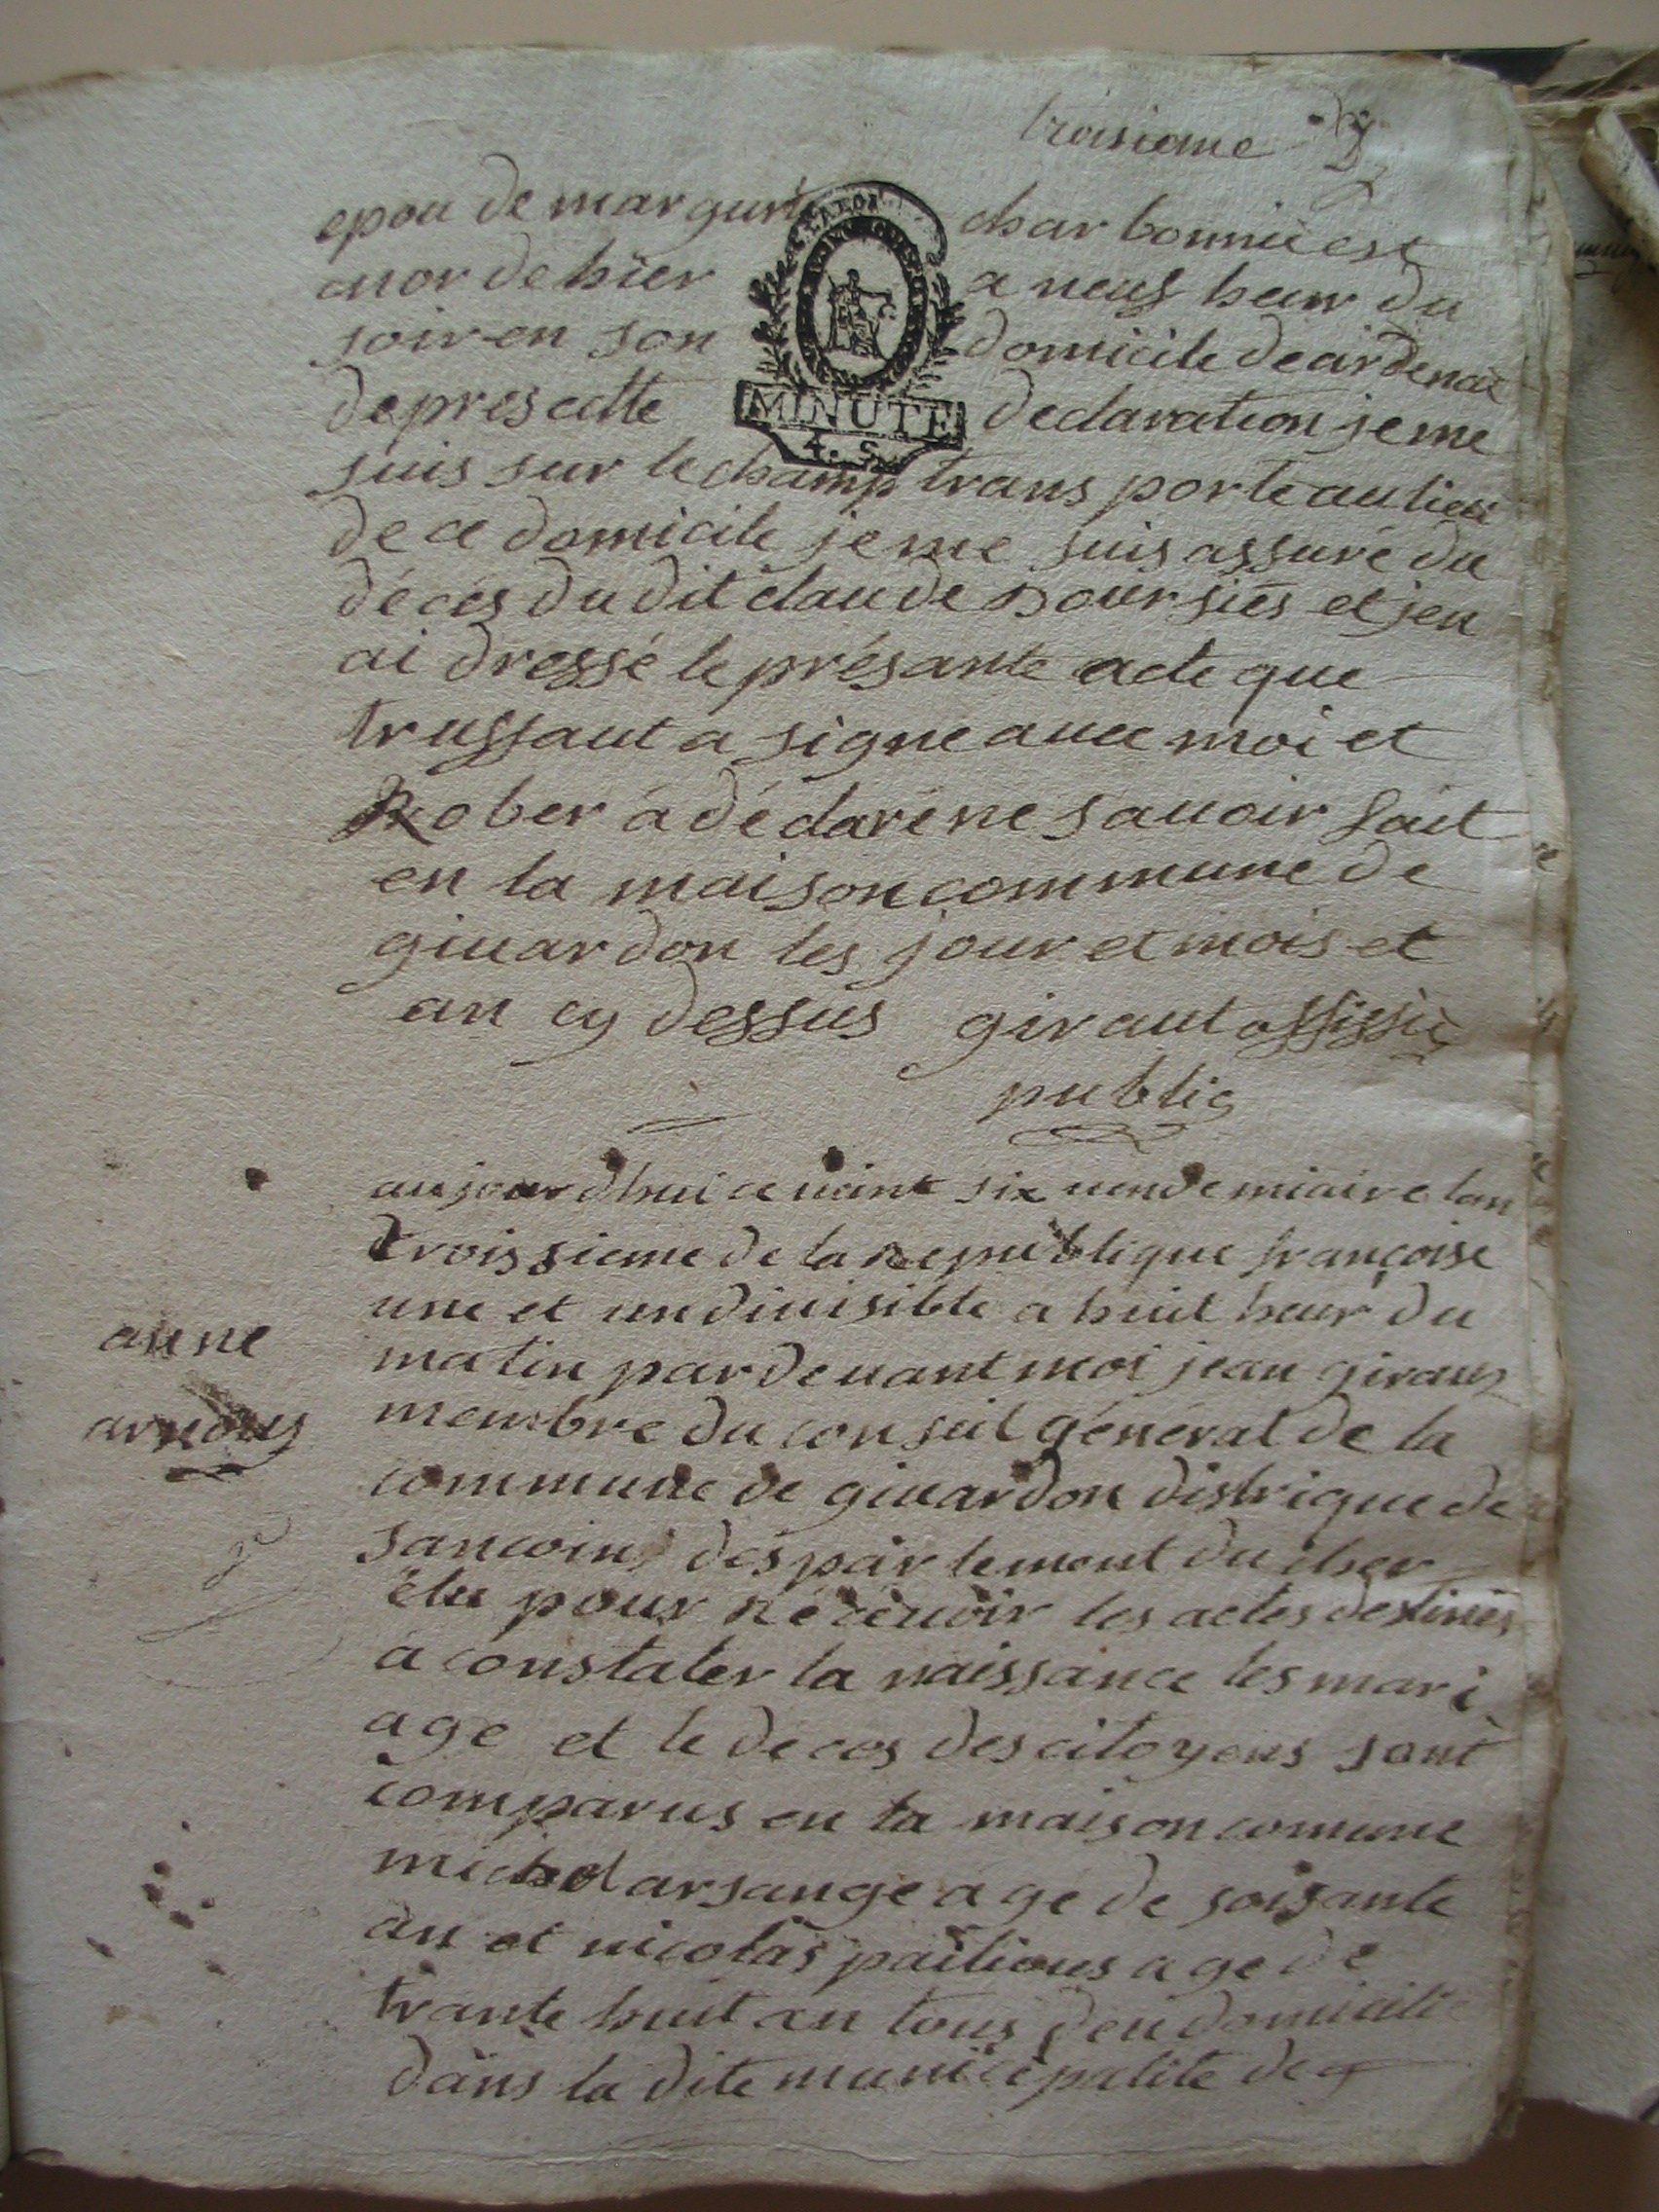 troisieme
epou de margurit charbonnié est
mor de hier a neuf heur du
soir en son domicile de ardenai
depres cette MINUTE declaration je me
4. S.
suis sur le champ transporte au lieu
de ce domicile je me suis assuré du
décés du dit claude boursiés et jen
ai dressé le présante acte que
trussaut a signe avec moi et
Rober a dé claré ne sauoir fait
en la maison commune de
giuardon les jour et mois et
an cy dessus giraut offissié
public
aujourdhui ce vint six uendemiaire lan
troissieme de la republique françoise
une et undiuisible a huit heur du
anne
matin par deuant moi jean giraus
arnous
membre du conseil général de la
commune de giuardon distrique de
sancoins déspartement du cher
élu pour récéuoir les actes destinés
a constater la naissance les mari
age et le deces des citoyens sont
comparus en la maison comune
michel arsange age de soisante
an et nicolas pailious age de
trante huit an tous deu domicilié
dans la dite municipalite de g